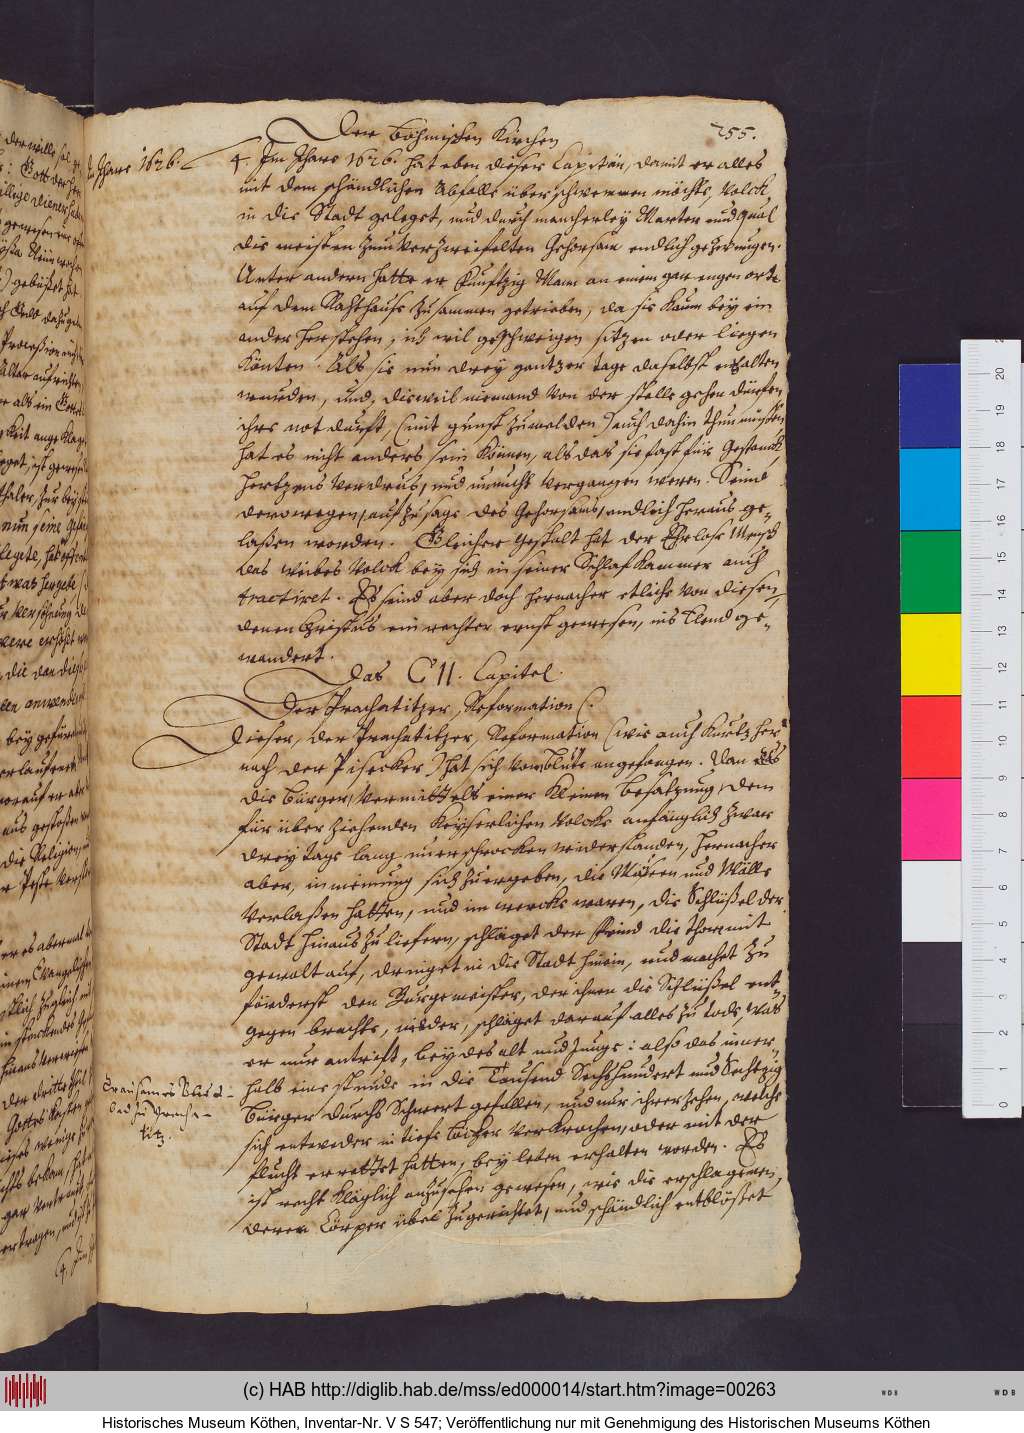 Der Böhmischen Kirchen
255.
Im Jhare 1626.
4. Im Jhare 1626. hat eben dieser Capitän, damit er alles
mit dem schändlichen Abfalle überschwemmen möchte, Volck
in die Stadt geleget, und durch mancherley Marter und Qual
die meisten zum verzweifelten Gehorsam endlich gezwungen.
Unter andern hatte er funftzig Mann an einen gar engen orte
auf dem Rahthause zusammen getrieben, da sie kaum bey ein
ander herstehen, ich wil geschweigen sitzen oder liegen
könten. Als sie nun drey gantzer tage daselbst enthalten
wurden, und, dieweil niemand von der stelle gehen dürfen
ihre notdurft, (mit gunst zumelden) auch dahin thun müssen
hat es nicht anders sein können, als das sie fast für Gestanck,
Hertzens verdrus, und unmacht vergangen weren. Seind
derowegen, auf zusage des Gehorsams, endlich heraus ge-
laßen worden. Gleicher Gestalt hat der Ehrlose Mensch
das weibes Volck bey sich in seiner Schlaf Kammer auch
tractiret. Es seind aber doch hernacher etliche von diesen,
denen Christus ein rechter ernst gewesen, ins Elend ge-
wandert.
Das CII. Capitel.
Der Prachatitzer, Reformation
Dieser, der Prachatitzer, Reformation (wie auch kurtz her
nach der Pisecker) hat sich vom blute angefangen. Dan als
die bürger, vermittelst einer kleinen besatzung, dem
für über ziehenden Keyserlichen Volcke anfänglich zwar
drey tage lang unerschrocken widerstanden, hernacher
aber, in meinung sich zu ergeben, die Mauren und Wälle
verlaßen hatten, und im wercke waren, die Schlüßel der
Stadt hinaus zu liefern, schläget der Feind die thor mit
gewalt auf, dringet in die Stadt hinein, und machet zu
förderst den Bürgemeister, der ihnen die Schlüßel ent-
gegen brachte, nieder, schläget darauf alles zu tode, was
er nur antrift, beydes alt und Junge: also das inner-
halb eine stunde in die Tausend Sechshundert und Sechtzig
bürger durchs Schwert gefallen, und nur ihrer zehen, welche
sich entweder in tiefe löcher verkrochen, oder mit der
flucht errettet hatten, bey leben erhalten worden. Es
ist recht kläglich anzusehen gewesen, wie die erschlagenen,
deren Cörper übel zugerichtet, und schändlich entblößet
Grausames Blut-
bad zu Pracha-
titz.
(c) HAB http://diglib.hab.de/mss/ed000014/start.htm?image=00263
Historisches Museum Köthen, Inventar-Nr. V S 547; Veröffentlichung nur mit Genehmigung des Historischen Museums Köthen